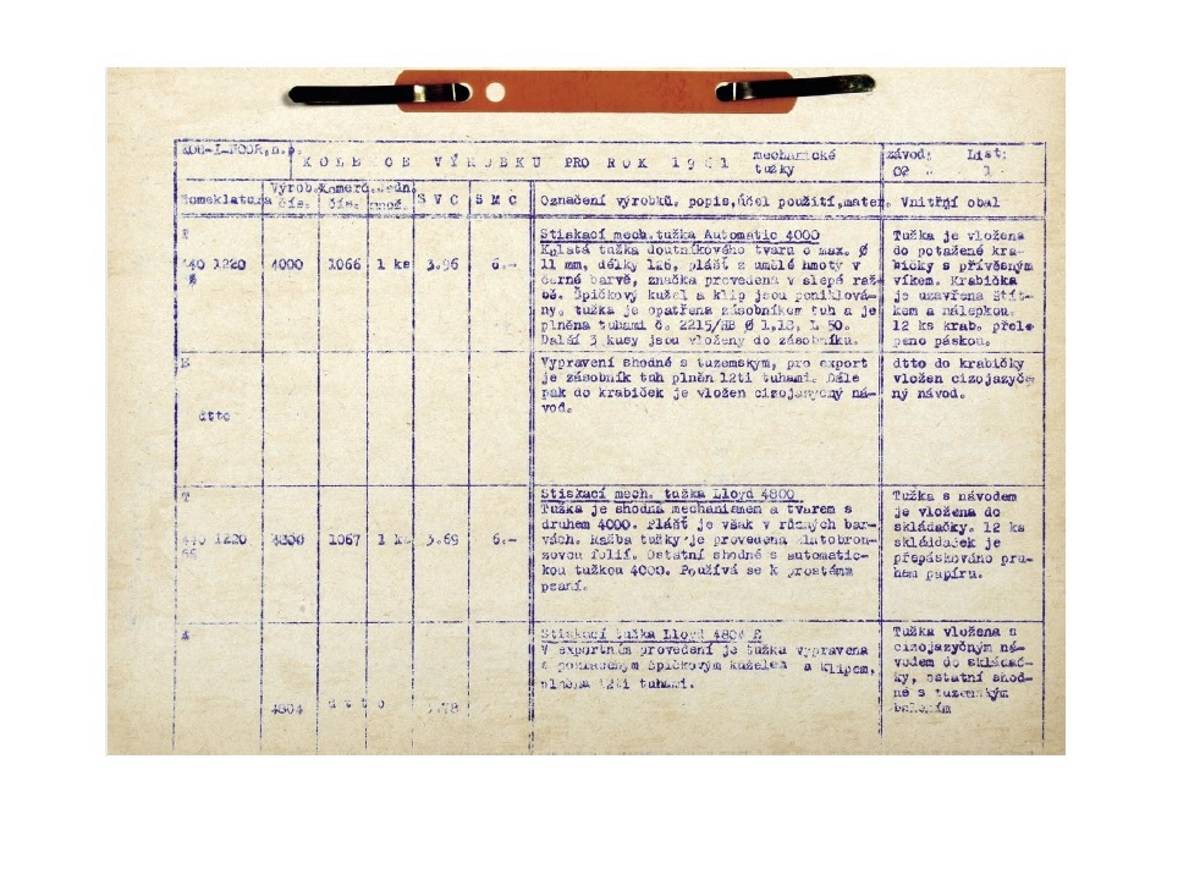 KOH-I-NOOR,n.p. KOLEKCE VÝROBKU PRO ROK 1961 mechanické tužky závod: List:
02 1
Nomeklatura Výrob. čís. Komerč. čís. Jedn. množ. SVC SMC Označení výrobků, popis,účel použití,mater. Vnitřní obal
T
440 1220 4000 1066 1 ks 3.96 6.-
Stiskací mech.tužka Automatic 4000
Kulatá tužka doutníkového tvaru o max. Ø
11 mm, délky 126, plášť z umělé hmoty v
černé barvě, značka provedena v slepé raž-
bě. Špičkový kužel a klip jsou poniklová-
ny. tužka je opatřena zásobníkem tuh a je
plněna tuhami č. 2215/HB Ø 1,18, L 50.
Další 3 kusy jsou vloženy do zásobníku.
Tužka je vložena
do potažené kra-
bičky s přívěsným
víkem. Krabička
je uzavřena štít-
kem a nálepkou.
12 ks krab. přele
peno páskou.
E
dtto
Vypravení shodné s tuzemským, pro export
je zásobník tuh plněn 12ti tuhami. Dále
pak do krabiček je vložen cizojazyčný ná-
vod.
dtto do krabičky
vložen cizojazyč-
ný návod.
T
440 1220 4800 1067 1 ks 3.69 6.-
66
Stiskací mech. tužka Lloyd 4800
Tužka je shodná mechanismem a tvarem s
druhem 4000. Plášť je však v různých bar-
vách. Ražba tužky je provedena zlatobron-
zovou folií. Ostatní shodné s automatic-
kou tužkou 4000. Používá se k prostému
psaní.
Tužka s návodem
je vložena do
skládačky. 12 ks
skládaček je
přepáskováno pru-
hem papíru.
4804 dtto
Stiskací tužka Lloyd 4804 E
V exportním provedení je tužka vypravena
s pozlaceným špičkovým kuželem a klipem,
plněna 12ti tuhami.
Tužka vložena s
cizojazyčným ná-
vodem do skládač-
ky, ostatní shod-
né s tuzemským
balením